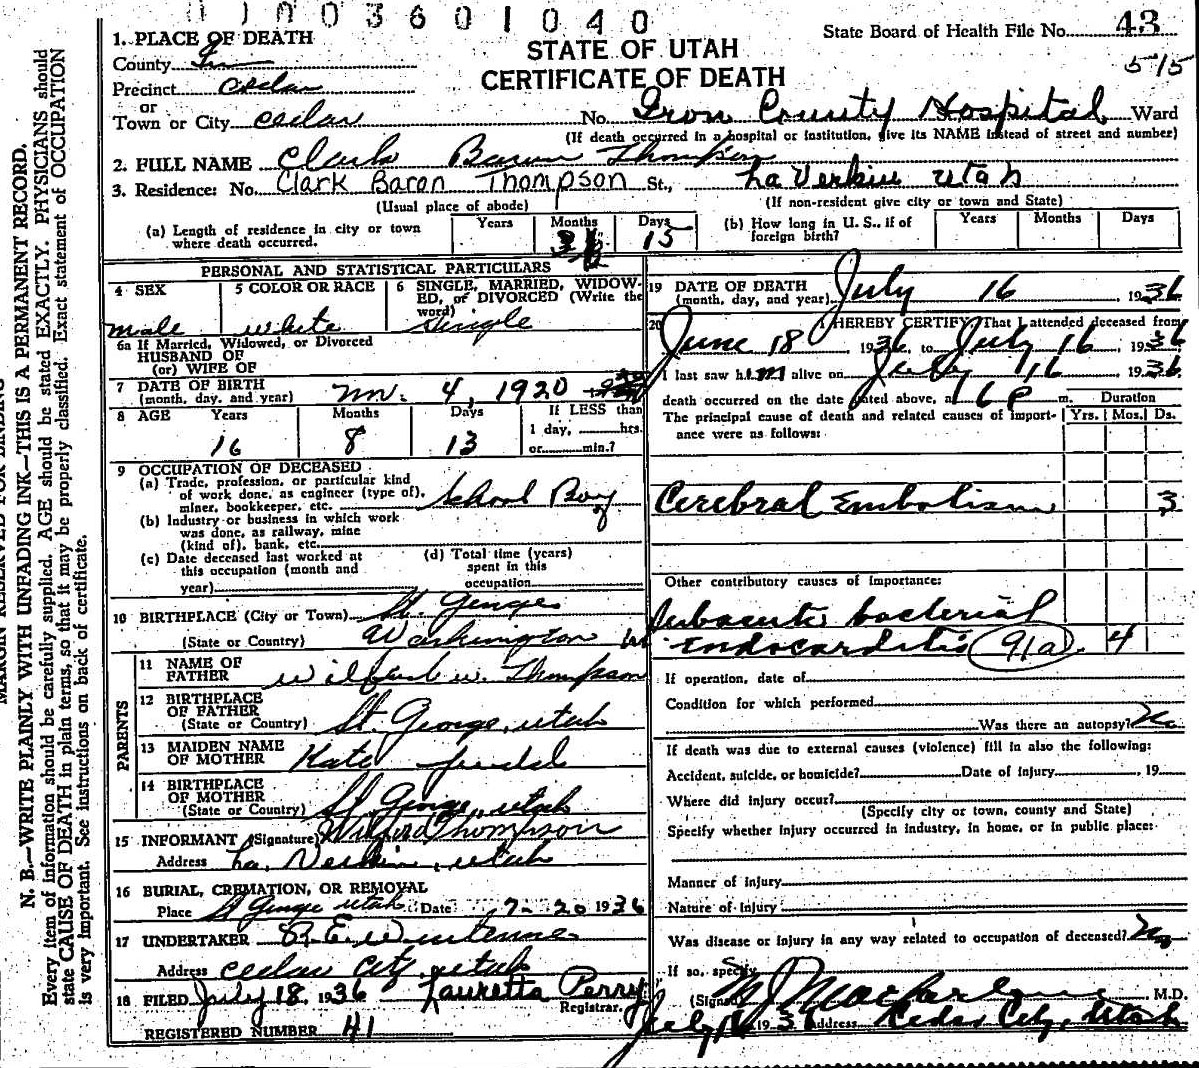 003601040
State Board of Health File No. 43
515
STATE OF UTAH
CERTIFICATE OF DEATH
1. PLACE OF DEATH
County
Precinct Cedar
or
Town or City Cedar No. Iron County Hospital Ward
(If death occurred in a hospital or institution, give its NAME instead of street and number)
2. FULL NAME Clark Baron Thompson
3. Residence: No. Clark Baron Thompson St., La Verkin Utah
(Usual place of abode) (If non-resident give city or town and State)
(a) Length of residence in city or town where death occurred. Years Months Days 15
(b) How long in U. S., if of foreign birth? Years Months Days
PERSONAL AND STATISTICAL PARTICULARS
4 SEX male
5 COLOR OR RACE white
6 SINGLE, MARRIED, WIDOWED, or DIVORCED (Write the word) Single
6a If Married, Widowed, or Divorced
HUSBAND OF
(or) WIFE OF
7 DATE OF BIRTH
(month, day, and year) 4, 1920
8 AGE Years 16 Months 8 Days 13 If LESS than 1 day, hrs. or min.?
9 OCCUPATION OF DECEASED
(a) Trade, profession, or particular kind of work done, as engineer (type of), miner, bookkeeper, etc. School Boy
(b) Industry or business in which work was done, as railway, mine (kind of), bank, etc.
(c) Date deceased last worked at this occupation (month and year)
(d) Total time (years) spent in this occupation
10 BIRTHPLACE (City or Town) St. George
(State or Country) Washington
PARENTS
11 NAME OF FATHER W. Thompson
12 BIRTHPLACE OF FATHER
(State or Country) St. George, Utah
13 MAIDEN NAME OF MOTHER Kate
14 BIRTHPLACE OF MOTHER
(State or Country) St. George, Utah
15 INFORMANT (Signature) Wilford Thompson
Address La Verkin, Utah
16 BURIAL, CREMATION, OR REMOVAL
Place St George Utah Date 7-20 1936
17 UNDERTAKER
Address Cedar City, Utah
18 FILED July 18, 1936 Lauretta Perry
Registrar.
REGISTERED NUMBER 41
19 DATE OF DEATH
(month, day, and year) July 16 1936
20 I HEREBY CERTIFY, That I attended deceased from
June 18 1936, to July 16, 1936
I last saw him alive on July 16, 1936
death occurred on the date stated above, at 16 P m. Duration
The principal cause of death and related causes of importance were as follows: Yrs. Mos. Ds.
Cerebral Embolism 3
Other contributory causes of importance:
Subacute bacterial
Endocarditis 91a. 4
If operation, date of
Condition for which performed
Was there an autopsy? No
If death was due to external causes (violence) fill in also the following:
Accident, suicide, or homicide? Date of injury , 19
Where did injury occur?
(Specify city or town, county and State)
Specify whether injury occurred in industry, in home, or in public place:
Manner of injury
Nature of injury
Was disease or injury in any way related to occupation of deceased? No
If so, specify
(Signed) Macfarlane, M.D.
July 1936 Address Cedar City, Utah
MARGIN RESERVED FOR BINDING
N. B.—WRITE PLAINLY WITH UNFADING INK—THIS IS A PERMANENT RECORD.
Every item of information should be carefully supplied. AGE should be stated EXACTLY. PHYSICIANS should
state CAUSE OF DEATH in plain terms, so that it may be properly classified. Exact statement of OCCUPATION
is very important. See instructions on back of certificate.